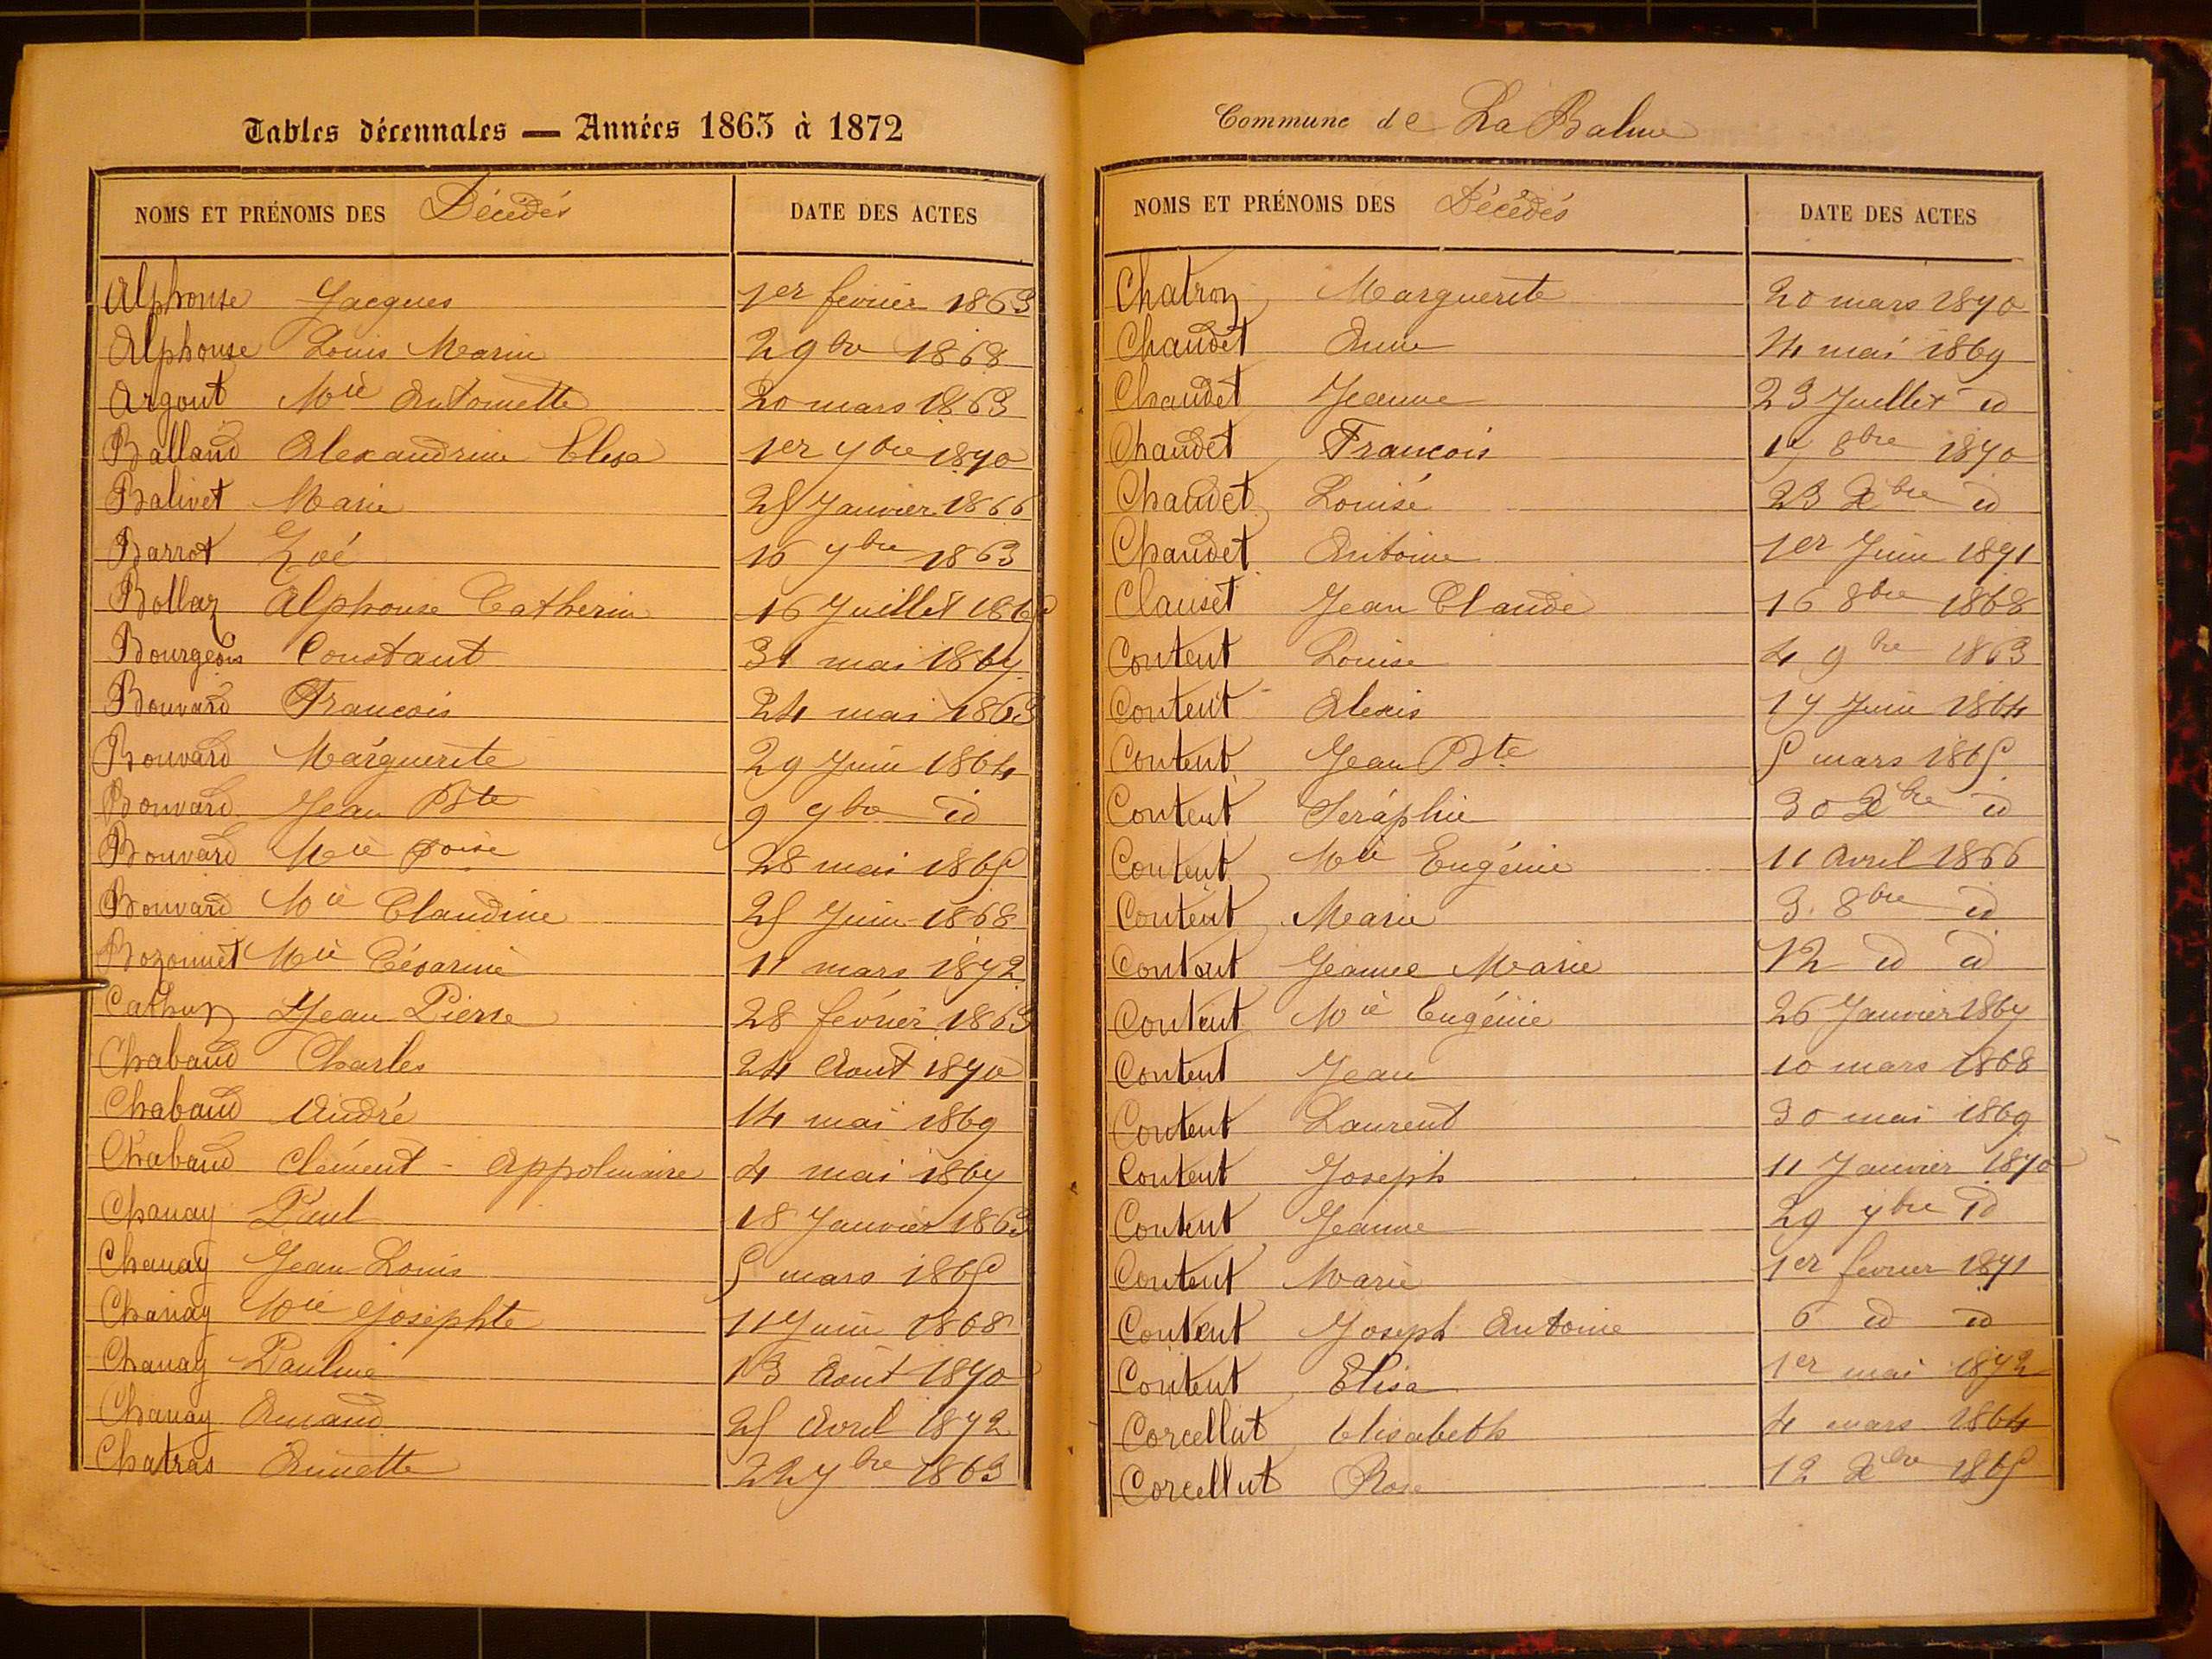 Tables décennales — Années 1863 à 1872
NOMS ET PRÉNOMS DES Décédés DATE DES ACTES
Alphonse Jacques 1er fevrier 1863
Alphonse Louis Marin 2 9bre 1868
Argout Mie Antoinette 20 mars 1863
Balland Alexandrine Elisa 1er 7bre 1870
Balivet Marie 25 Janvier 1866
Barrot Zoé 16 7bre 1863
Bollaz Alphonse Catherin 16 Juillet 1865
Bourgeois Constant 31 mai 1867
Bouvard Francois 24 mai 1863
Bouvard Marguerite 29 Juin 1864
Bouvard Jean Bte 9 7bre id
Bouvard Mie foise 28 mai 1865
Bouvard Mie Claudine 25 Juin 1868
Bozonnet Mie Césarine 11 mars 1872
Cathin Jean Pierre 28 février 1863
Chabaud Charles 24 Aout 1870
Chabaud André 14 mai 1869
Chabaud Clément - Appolinaire 4 mai 1867
Chanay Paul 18 Janvier 1863
Chanay Jean Louis 5 mars 1865
Chanay Mie Josephte 11 Juin 1868
Chanay Pauline 13 Août 1870
Chanay Amand 25 Avril 1872
Chatras Annette 22 7bre 1863
Commune de La Balme
NOMS ET PRÉNOMS DES Décédés DATE DES ACTES
Chatron Marguerite 20 mars 1870
Chaudet Anne 14 mai 1869
Chaudet Jeanne 23 Juillet id
Chaudet Francois 17 8bre 1870
Chaudet Louise 23 Xbre id
Chaudet Antoine 1er Juin 1871
Clauset Jean Claude 16 8bre 1868
Content Louise 4 9bre 1863
Content Alexis 17 Juin 1864
Content Jean Bte 5 mars 1865
Content Séraphie 30 Xbre id
Content Mie Eugénie 11 Avril 1866
Content Marie 3 8bre id
Content Jeanne Marie 12 id id
Content Mie Eugénie 26 Janvier 1867
Content Jean 10 mars 1868
Content Laurent 30 mai 1869
Content Joseph 11 Janvier 1870
Content Jeanne 29 7bre id
Content Marie 1er fevrier 1871
Content Joseph Antoine 6 id id
Content Elisa 1er mai 1872
Corcellut Elisabeth 4 mars 1864
Corcellut Rose 12 Xbre 1865